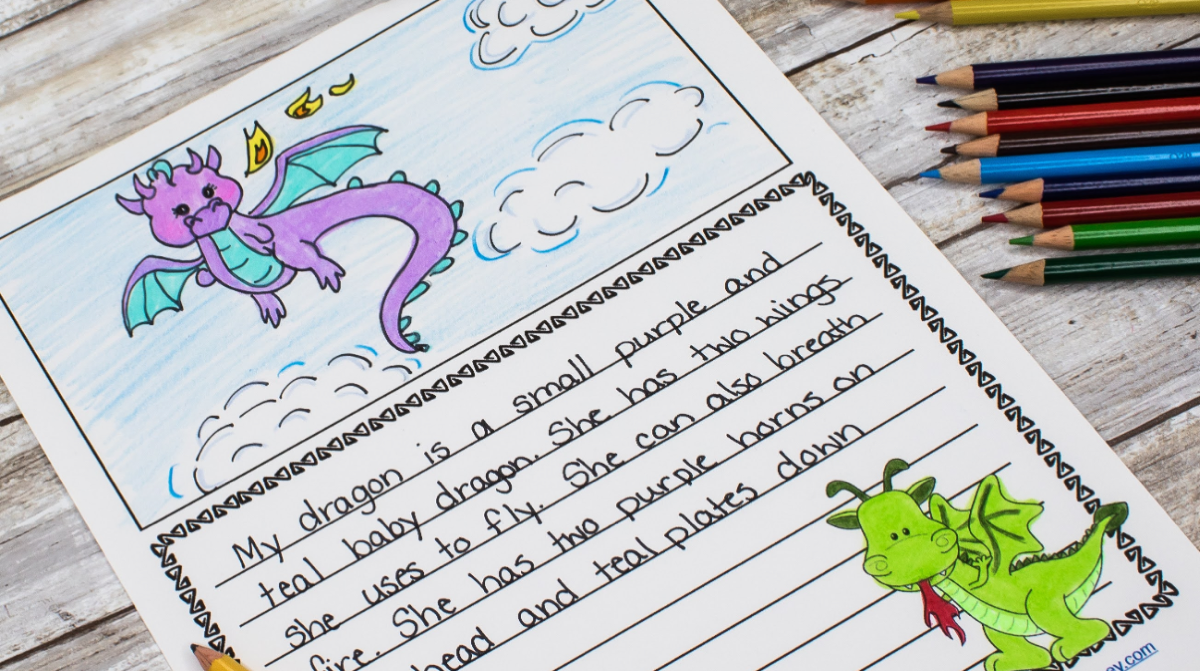 My dragon is a small purple and
teal baby dragon. She has two wings
she uses to fly. She can also breath
fire. She has two purple horns on
head and teal plates down